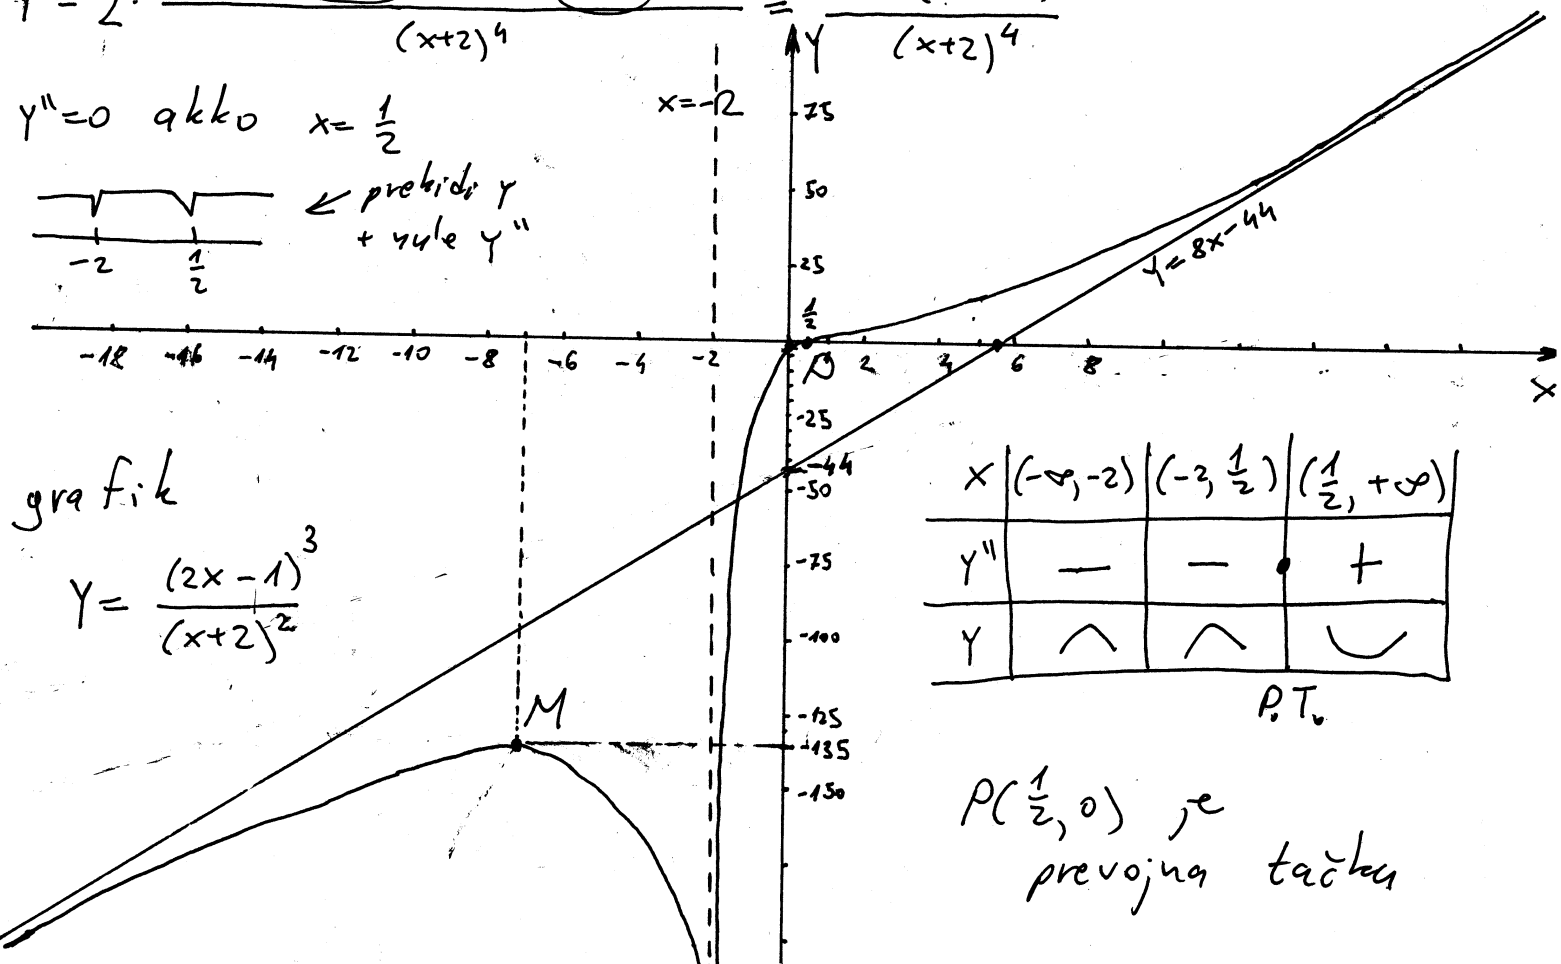 (x+2)⁴ = (x+2)⁴
Y''=0 akko x= 1/2
← prekidi Y
+ nule Y''
-2 1/2
x=-2
Y
75
50
25
1/2
-18 -16 -14 -12 -10 -8 -6 -4 -2 P 2 4 6 8
X
-25
-44
-50
-75
-100
-125
-135
-150
Y=8x-44
M
grafik
Y= (2x-1)³/(x+2)²
X (-∞,-2) (-2, 1/2) (1/2, +∞)
Y'' — — +
Y
P.T.
P(1/2, 0) je
prevojna tačka